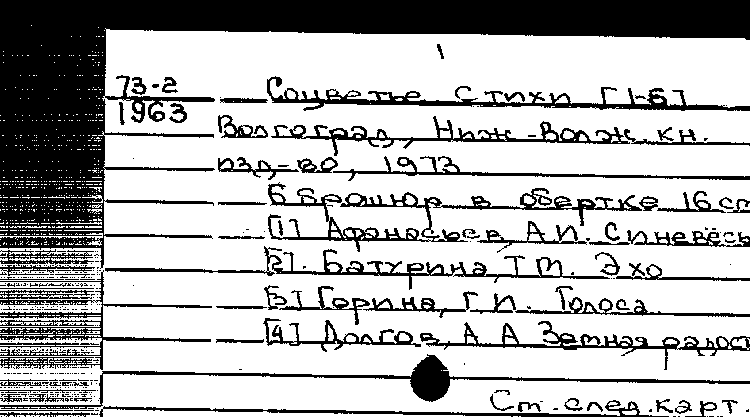 73-2 Соцветье Стихи [1-6]
1963
Волгоград, Ниж.-Волж. кн.
изд-во, 1973
6 брошюр в обертке 16 см
[1] Афанасьев, А.И. Синевёсь
[2]. Батурина, Т.М. Эхо
[3] Горина, Г.И. Голоса
[4] Долгов, А А Земная радост
См. след. карт.